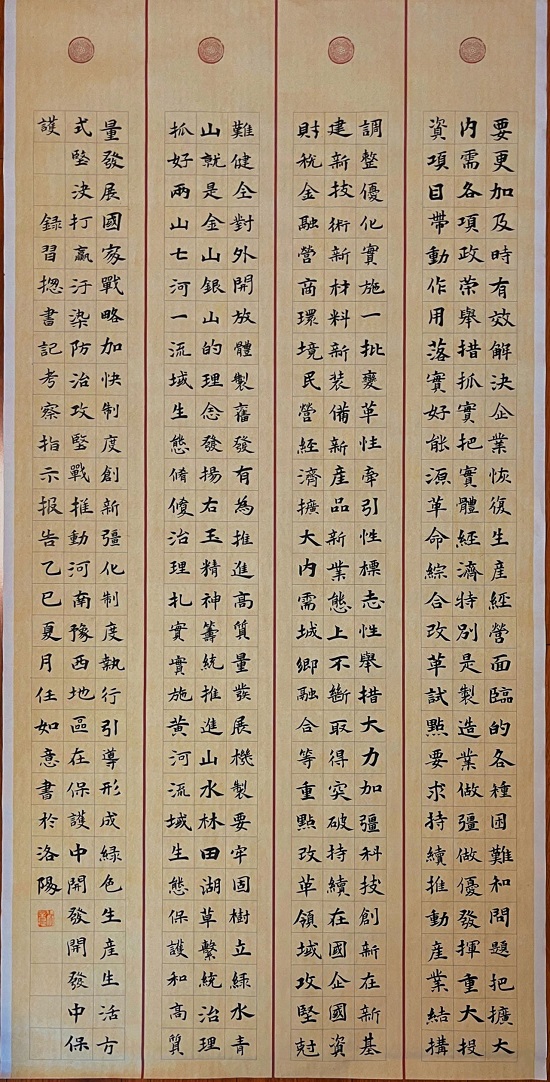 要更加及時有效解決企業恢復生產經營面臨的各種困難和問題把擴大
內需各項政策舉措抓實把實體經濟特別是製造業做彊做優發揮重大投
資項目帶動作用落實好能源革命綜合改革試點要求持續推動產業結構
調整優化實施一批變革性牽引性標志性舉措大力加彊科技創新在新基
建新技術新材料新裝備新產品新業態上不斷取得突破持續在國企國資
財稅金融營商環境民營經濟擴大內需城鄉融合等重點改革領域攻堅尅
難健全對外開放體製舊發有為推進高質量發展機製要牢固樹立綠水青
山就是金山銀山的理念發揚右玉精神籌統推進山水林田湖草繫統治理
抓好兩山七河一流域生態脩復治理扎實實施黃河流域生態保護和高質
量發展國家戰略加快制度創新彊化制度執行引導形成綠色生產生活方
式堅決打贏汙染防治攻堅戰推動河南豫西地區在保護中開發開發中保
護 錄習揔書記考察指示報告乙巳夏月任如意書於洛陽